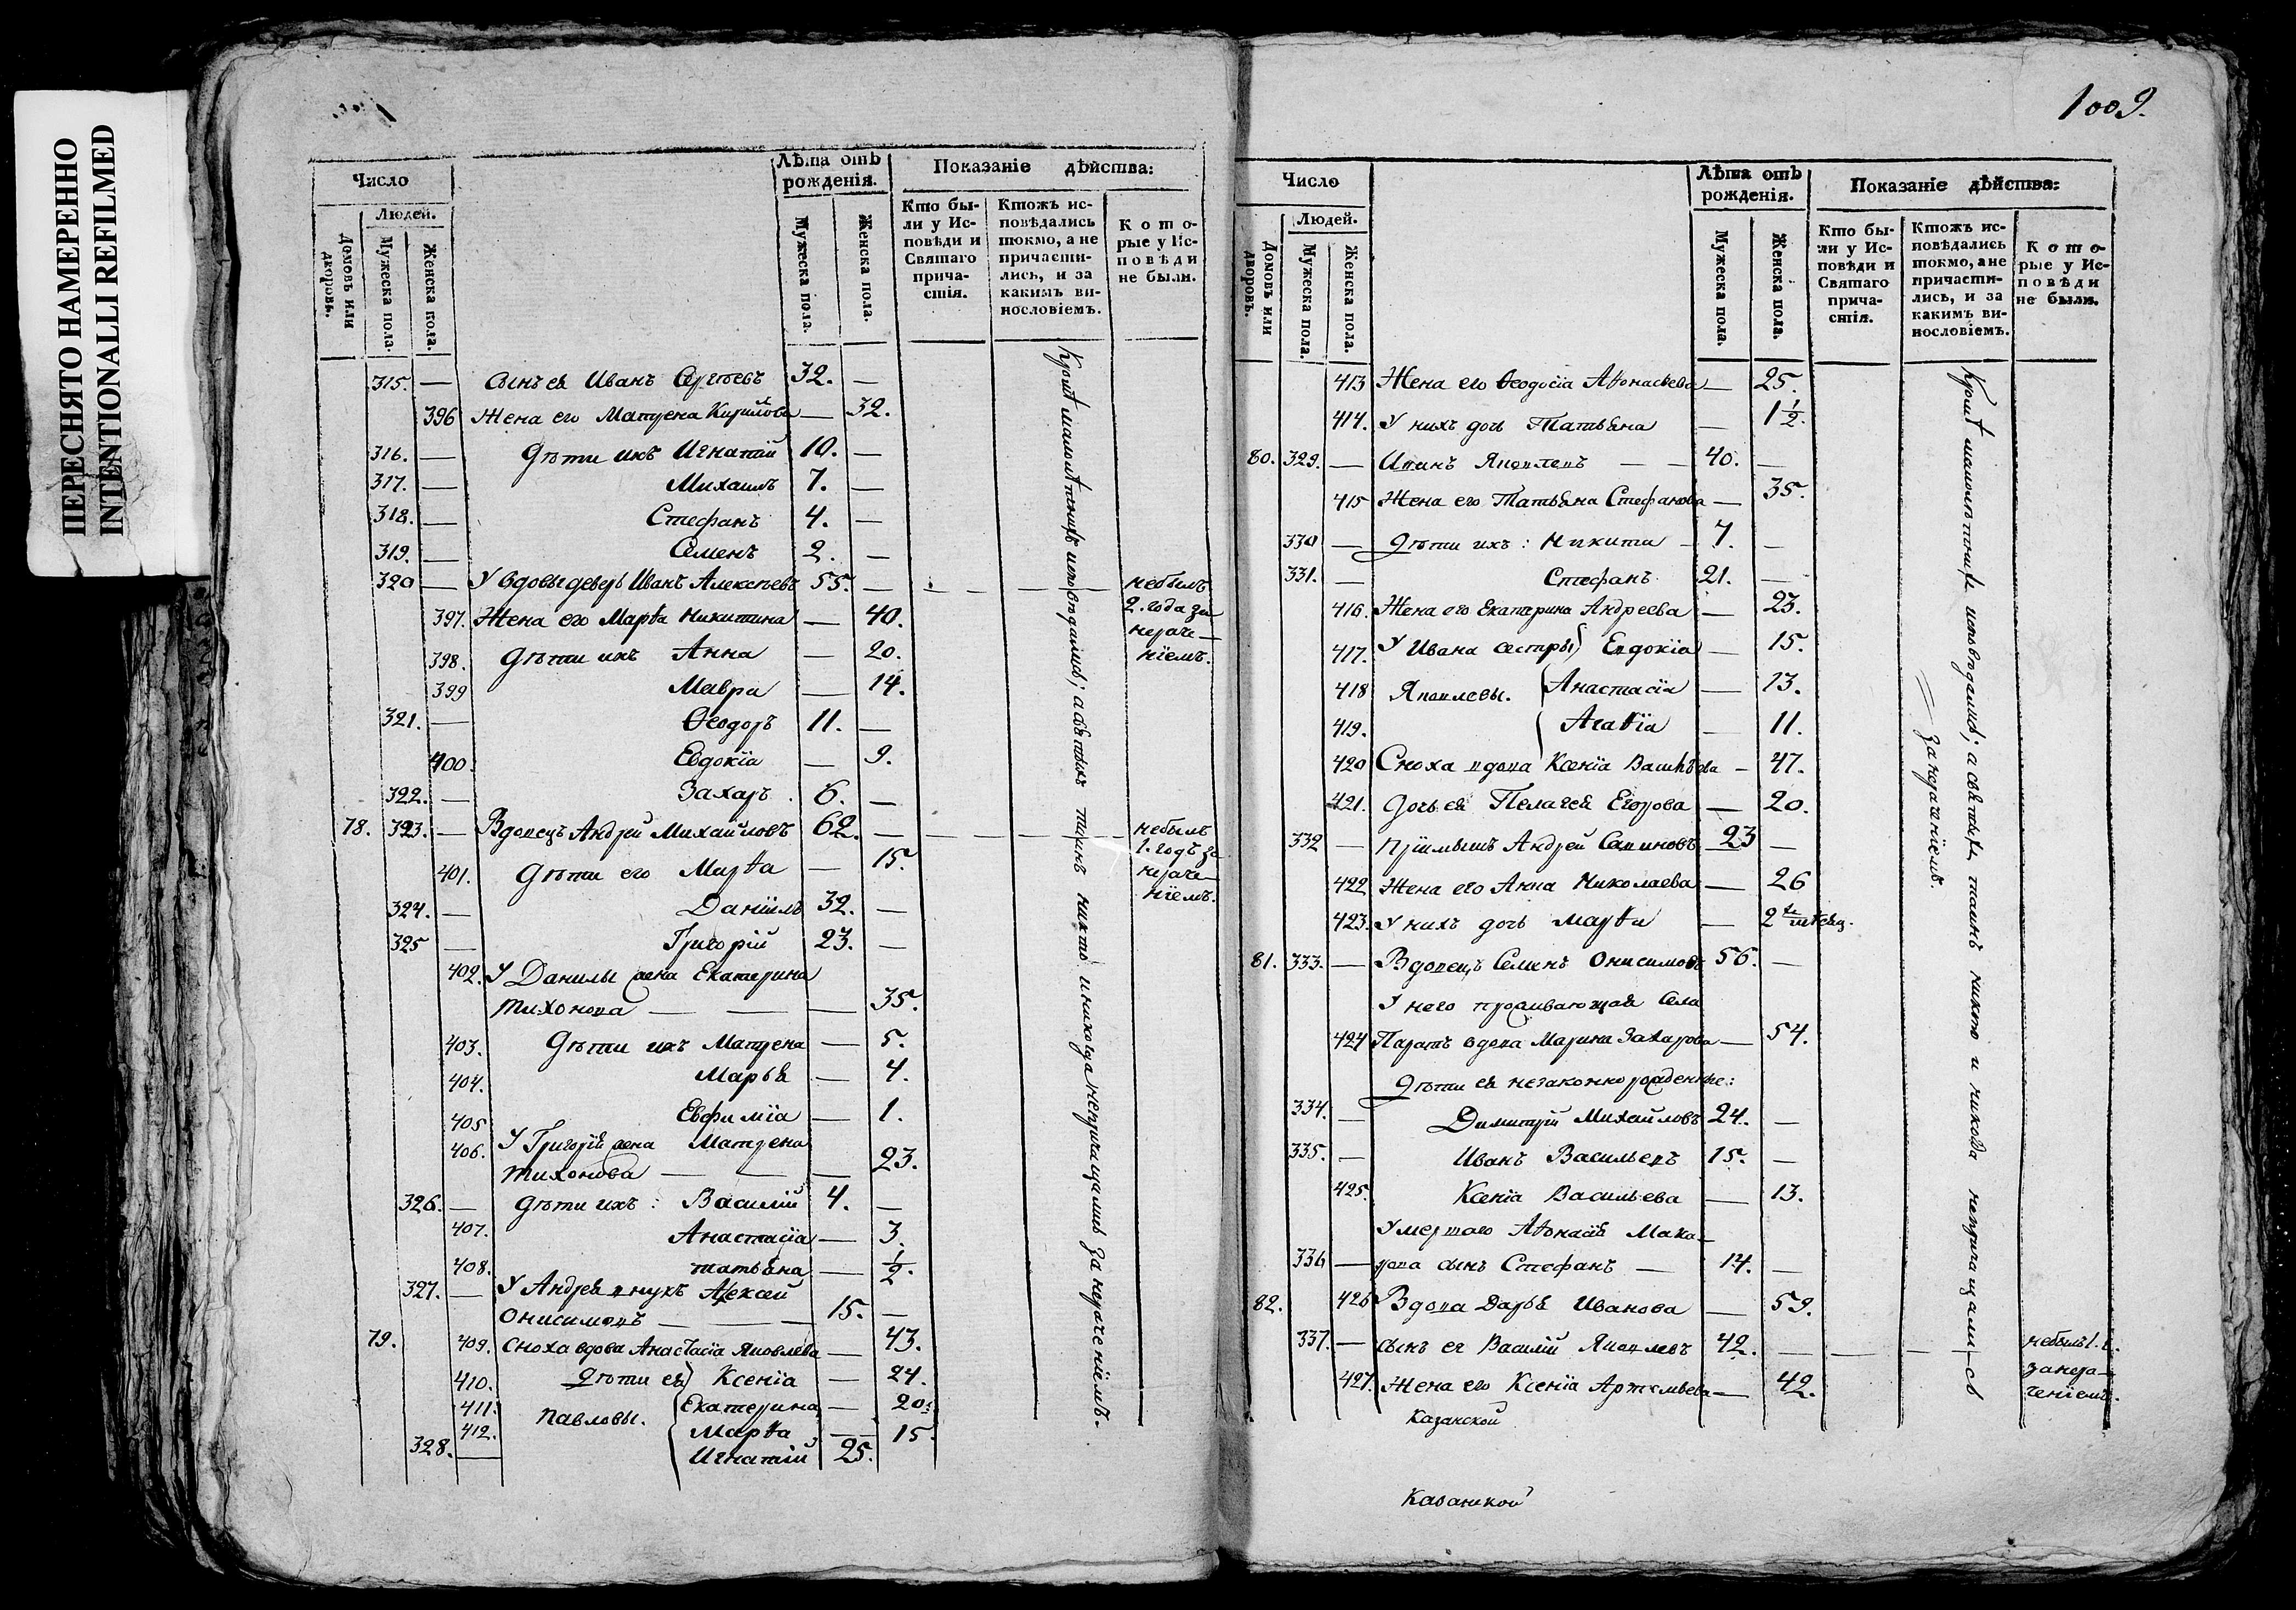 ПЕРЕСНЯТО НАМЕРЕННО
INTENTIONALLI REFILMED
Число
Лѣта отъ рожденія.
Показаніе дѣйства:
Домовъ или дворовъ.
Людей.
Мужеска пола.
Женска пола.
Мужеска пола.
Женска пола.
Кто были у Исповѣди и Святаго причастія.
Ктожъ исповѣдались токмо, а не причастились, и за какимъ винословіемъ.
Которые у Исповѣди не были.
315. — Сынъ ея Иванъ Сергѣевъ 32. —
396 Жена его Матрена Кирилова — 32.
316. — Дѣти ихъ Игнатій 10. —
317. — Михаилъ 7. —
318. — Стефанъ 4. —
319. — Семенъ 2. —
320 — У вдовы деверь Иванъ Алексѣевъ 55. — небылъ 2. года за нераченіемъ.
397. Жена его Марѳа Никитина — 40.
398. Дѣти ихъ Анна — 20.
399 Мавра — 14.
321. — Ѳеодоръ 11. —
400. Евдокія — 9.
322. — Захаръ 6. —
78. 323. — Вдовецъ Андрей Михайловъ 62. — небылъ 1. годъ за нераченіемъ.
401. Дѣти его Марѳа — 15.
324. — Даніилъ 32. —
325 — Григорій 23. —
402. У Данилы жена Екатерина
Тихонова — 35.
403. Дѣти ихъ Матрена — 5.
404. Марья — 4.
405 Евфимія — 1.
406. У Григорія жена Матрена
Тихонова — 23.
326. — Дѣти ихъ: Василій 4. —
407. Анастасія — 3.
408. Татьяна — ½.
327. — У Андрея внукъ Алексей
Онисимовъ — 15. —
79. 409. Сноха вдова Анастасія Яковлева — 43.
410. Дѣти ея Ксенія — 24.
411. Павловы. Екатерина — 20.
412. Марѳа — 15.
328. — Игнатій 25.
Кромѣ малолѣтнихъ исповѣдались; а святыхъ таинъ никто и никогда непричащались за нераченіемъ.
1009.
Число
Лѣта отъ рожденія.
Показаніе дѣйства:
Домовъ или дворовъ.
Людей.
Мужеска пола.
Женска пола.
Мужеска пола.
Женска пола.
Кто были у Исповѣди и Святаго причастія.
Ктожъ исповѣдались токмо, а не причастились, и за какимъ винословіемъ.
Которые у Исповѣди не были.
413 Жена его Ѳеодосія Аѳонасьева — 25.
414. У нихъ дочь Татьяна — 1½.
80. 329. — Иванъ Яковлевъ — 40. —
415 Жена его Татьяна Стефанова — 35.
330 — Дѣти ихъ: Никита — 7. —
331. — Стефанъ 21. —
416. Жена его Екатерина Андреева — 23.
417. У Ивана сестры Евдокія — 15.
418 Яковлевы. Анастасія — 13.
419. Агаѳія — 11.
420 Сноха вдова Ксенія Васильева — 47.
421. Дочь ея Пелагея Егорова — 20.
332 — Пріимышъ Андрей Савиновъ 23 —
422 Жена его Анна Николаева — 26
423. У нихъ дочь Марѳа — 2
81. 333. — Вдовецъ Семенъ Онисимовъ 56. —
У него проживающая Села
424 вдова Марина Захарова — 54.
Дѣти ея незаконнорожденные:
334. — Димитрій Михайловъ 24. —
335. — Иванъ Васильевъ 15. —
425. Ксенія Васильева — 13.
Умершаго Аѳонасія Мака-
336 — рова сынъ Стефанъ — 14. —
82. 426 Вдова Дарья Иванова — 59.
337. — Сынъ ее Василій Яковлевъ 42. — небылъ 1. г. за нераченіемъ.
427. Жена его Ксенія Артемьева — 42.
Казанской
Кромѣ малолѣтнихъ исповѣдались; а святыхъ таинъ никто и никогда непричащались за нераченіемъ.
Казанской